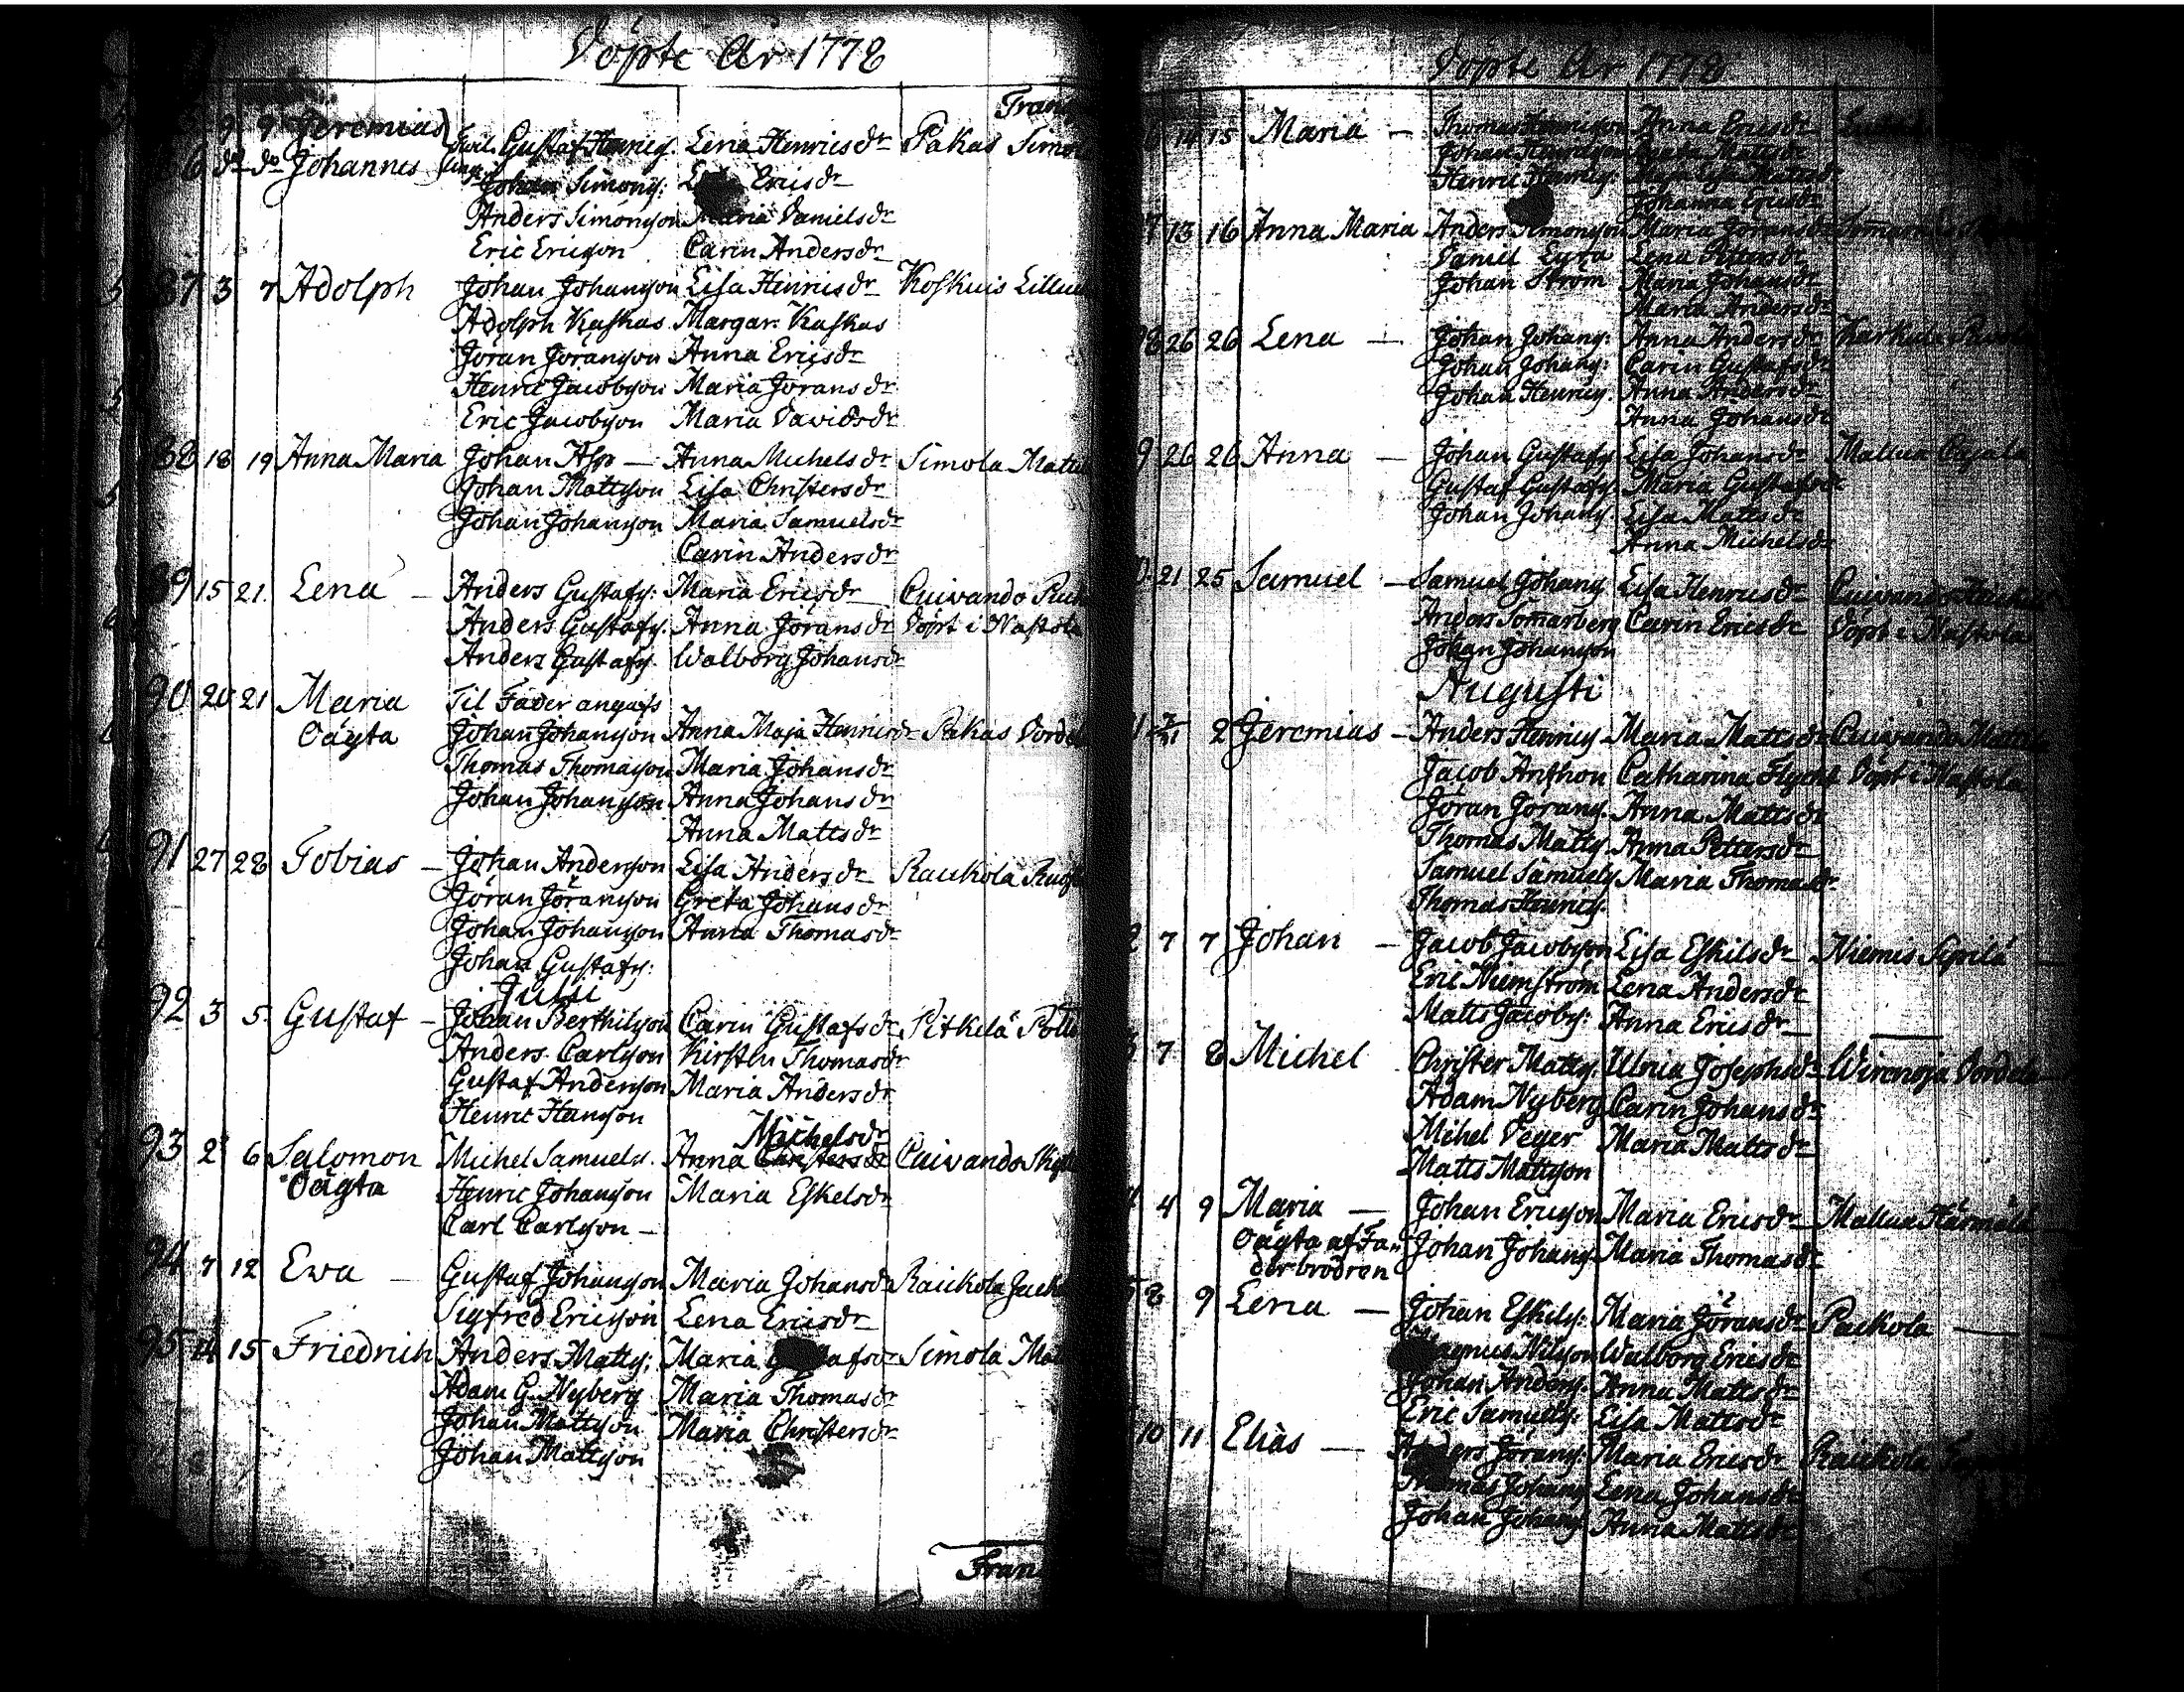 Döpte År 1778
Trans
9 9 Jeremias Gustaf Henrics: Lena Henricsdr Pakas Simo
6 do do Johannes Johan Simons: Ericsdr
Anders Simonsson Maria Danielsdr
Eric Ericsson Carin Andersdr
87 3 7 Adolph Johan Johansson Lisa Henricsdr Koskuis Lillu
Adolph Kaskas Margar. Kaskas
Jöran Göransson Anna Ericsdr
Henric Jacobsson Maria Göransdr
Eric Jacobsson Maria Davidsdr
88 18 19 Anna Maria Johan Asp — Anna Michelsdr Simola Matti
Johan Mattsson Lisa Christersdr
Johan Johansson Maria Samuelsdr
Carin Andersdr
89 15 21 Lena — Anders Gustafs: Maria Ericsdr Cuivando
Anders Gustafs. Anna Göransdr Döpt i Nastola
Anders Gustafs. Walborg Johansdr
90 20 21 Maria Til Fader angafs
Oägta Johan Johansson Anna Maja Henricsdr Pakas Dordo
Thomas Thomasson Maria Johansdr
Johan Johansson Anna Johansdr
Anna Mattsdr
91 27 28 Tobias — Johan Andersson Lisa Andersdr Raukola
Jöran Göransson Greta Johansdr
Johan Johansson Anna Thomasdr
Johan Gustafs:
Julii
92 3 5 Gustaf — Johan Berthilsson Carin Gustafsdr Pitkelä
Anders Carlsson Kirstin Thomasdr
Gustaf Andersson Maria Andersdr
Henric Hansson
Michelsdr
93 2 6 Salomon Michel Samuels. Anna Christersdr Cuivando
Oägta Henric Johansson Maria Eskelsdr
Carl Carlsson —
94 7 12 Ewa — Gustaf Johansson Maria Johansdr Raickola
Sigfred Ericsson Lena Ericsdr
95 14 15 Friedrich Anders Matts: Maria Simola
Adam G. Nyberg Maria Thomasdr
Johan Mattsson Maria Christersdr
Johan Mattsson
Trans
Döpte År 1778
14 15 Maria — Thomas Henricsson Anna Ericsdr
Henric
Johanna Ericsdr
7 13 16 Anna Maria Anders Simonsson Maria Göransdr
Daniel Lyra Lena Pettersdr
Johan Ström Maria Johansdr
Maria Andersdr
98 26 26 Lena — Johan Johans: Anna Andersdr
Johan Johans: Carin Gustafsdr
Johan Henrics. Anna Andersdr
Anna Johansdr
9 26 26 Anna — Johan Gustafs Lisa Johansdr Mallua
Gustaf Gustafs. Maria Gustafsdr
Johan Johans. Lisa Mattsdr
Anna Michelsdr
21 25 Samuel — Samuel Johans Lisa Henricsdr Cuivando
Anders Sommarberg Carin Ericsdr Döpt i Nastola
Johan Johansson
Augusti
2 Jeremias — Anders Henrics Maria Mattsdr Cuivando
Jacob Anthon Catharina Flycht Döpt i Nastola
Jöran Görans. Anna Mattsdr
Thomas Matts Anna Pettersdr
Samuel Samuels Maria Thomasdr
Thomas Henrics.
2 7 7 Johan — Jacob Jacobsson Lisa Eskilsdr Niemis Sipilä —
Eric Niemström Lena Andersdr
Matts Jacobs: Anna Ericsdr —
3 7 8 Michel Christer Matts. Ulrica Josephsdr Wirenoja
Adam Nyberg Carin Johansdr
Mihel Veger Maria Mattsdr
Matts Mattsson
4 9 Maria — Johan Ericsson Maria Ericsdr Mallua
Oägta af Fa Johan Johans Maria Thomasdr
derbrodren
8 9 Lena — Johan Eskils: Maria Göransdr Packola —
Magnus Nilsson Walborg Ericsdr
Johan Anders. Anna Mattsdr
Eric Samuels: Lisa Mattsdr
10 11 Elias — Anders Görans: Maria Ericsdr Raickola
Thomas Johans Lena Johansdr
Johan Johans Anna Mattsdr